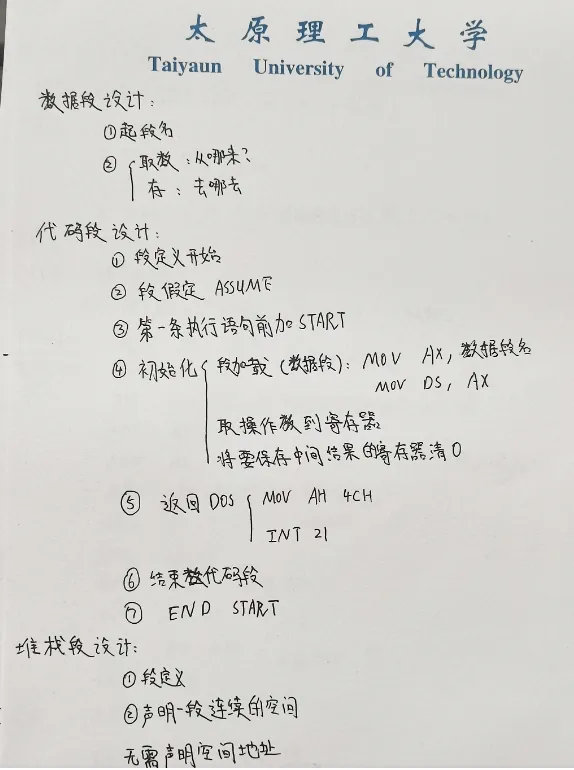 太原理工大学
Taiyaun University of Technology
数据段设计:
①起段名
② 取数:从哪来?
存:去哪去
代码段设计:
① 段定义开始
② 段假定 ASSUME
③ 第一条执行语句前加START
④ 初始化 段加载(数据段): MOV AX, 数据段名
MOV DS, AX
取操作数到寄存器
将要保存中间结果的寄存器清0
⑤ 返回DOS MOV AH 4CH
INT 21
⑥ 结束代码段
⑦ END START
堆栈段设计:
①段定义
②声明一段连续的空间
无需声明空间地址